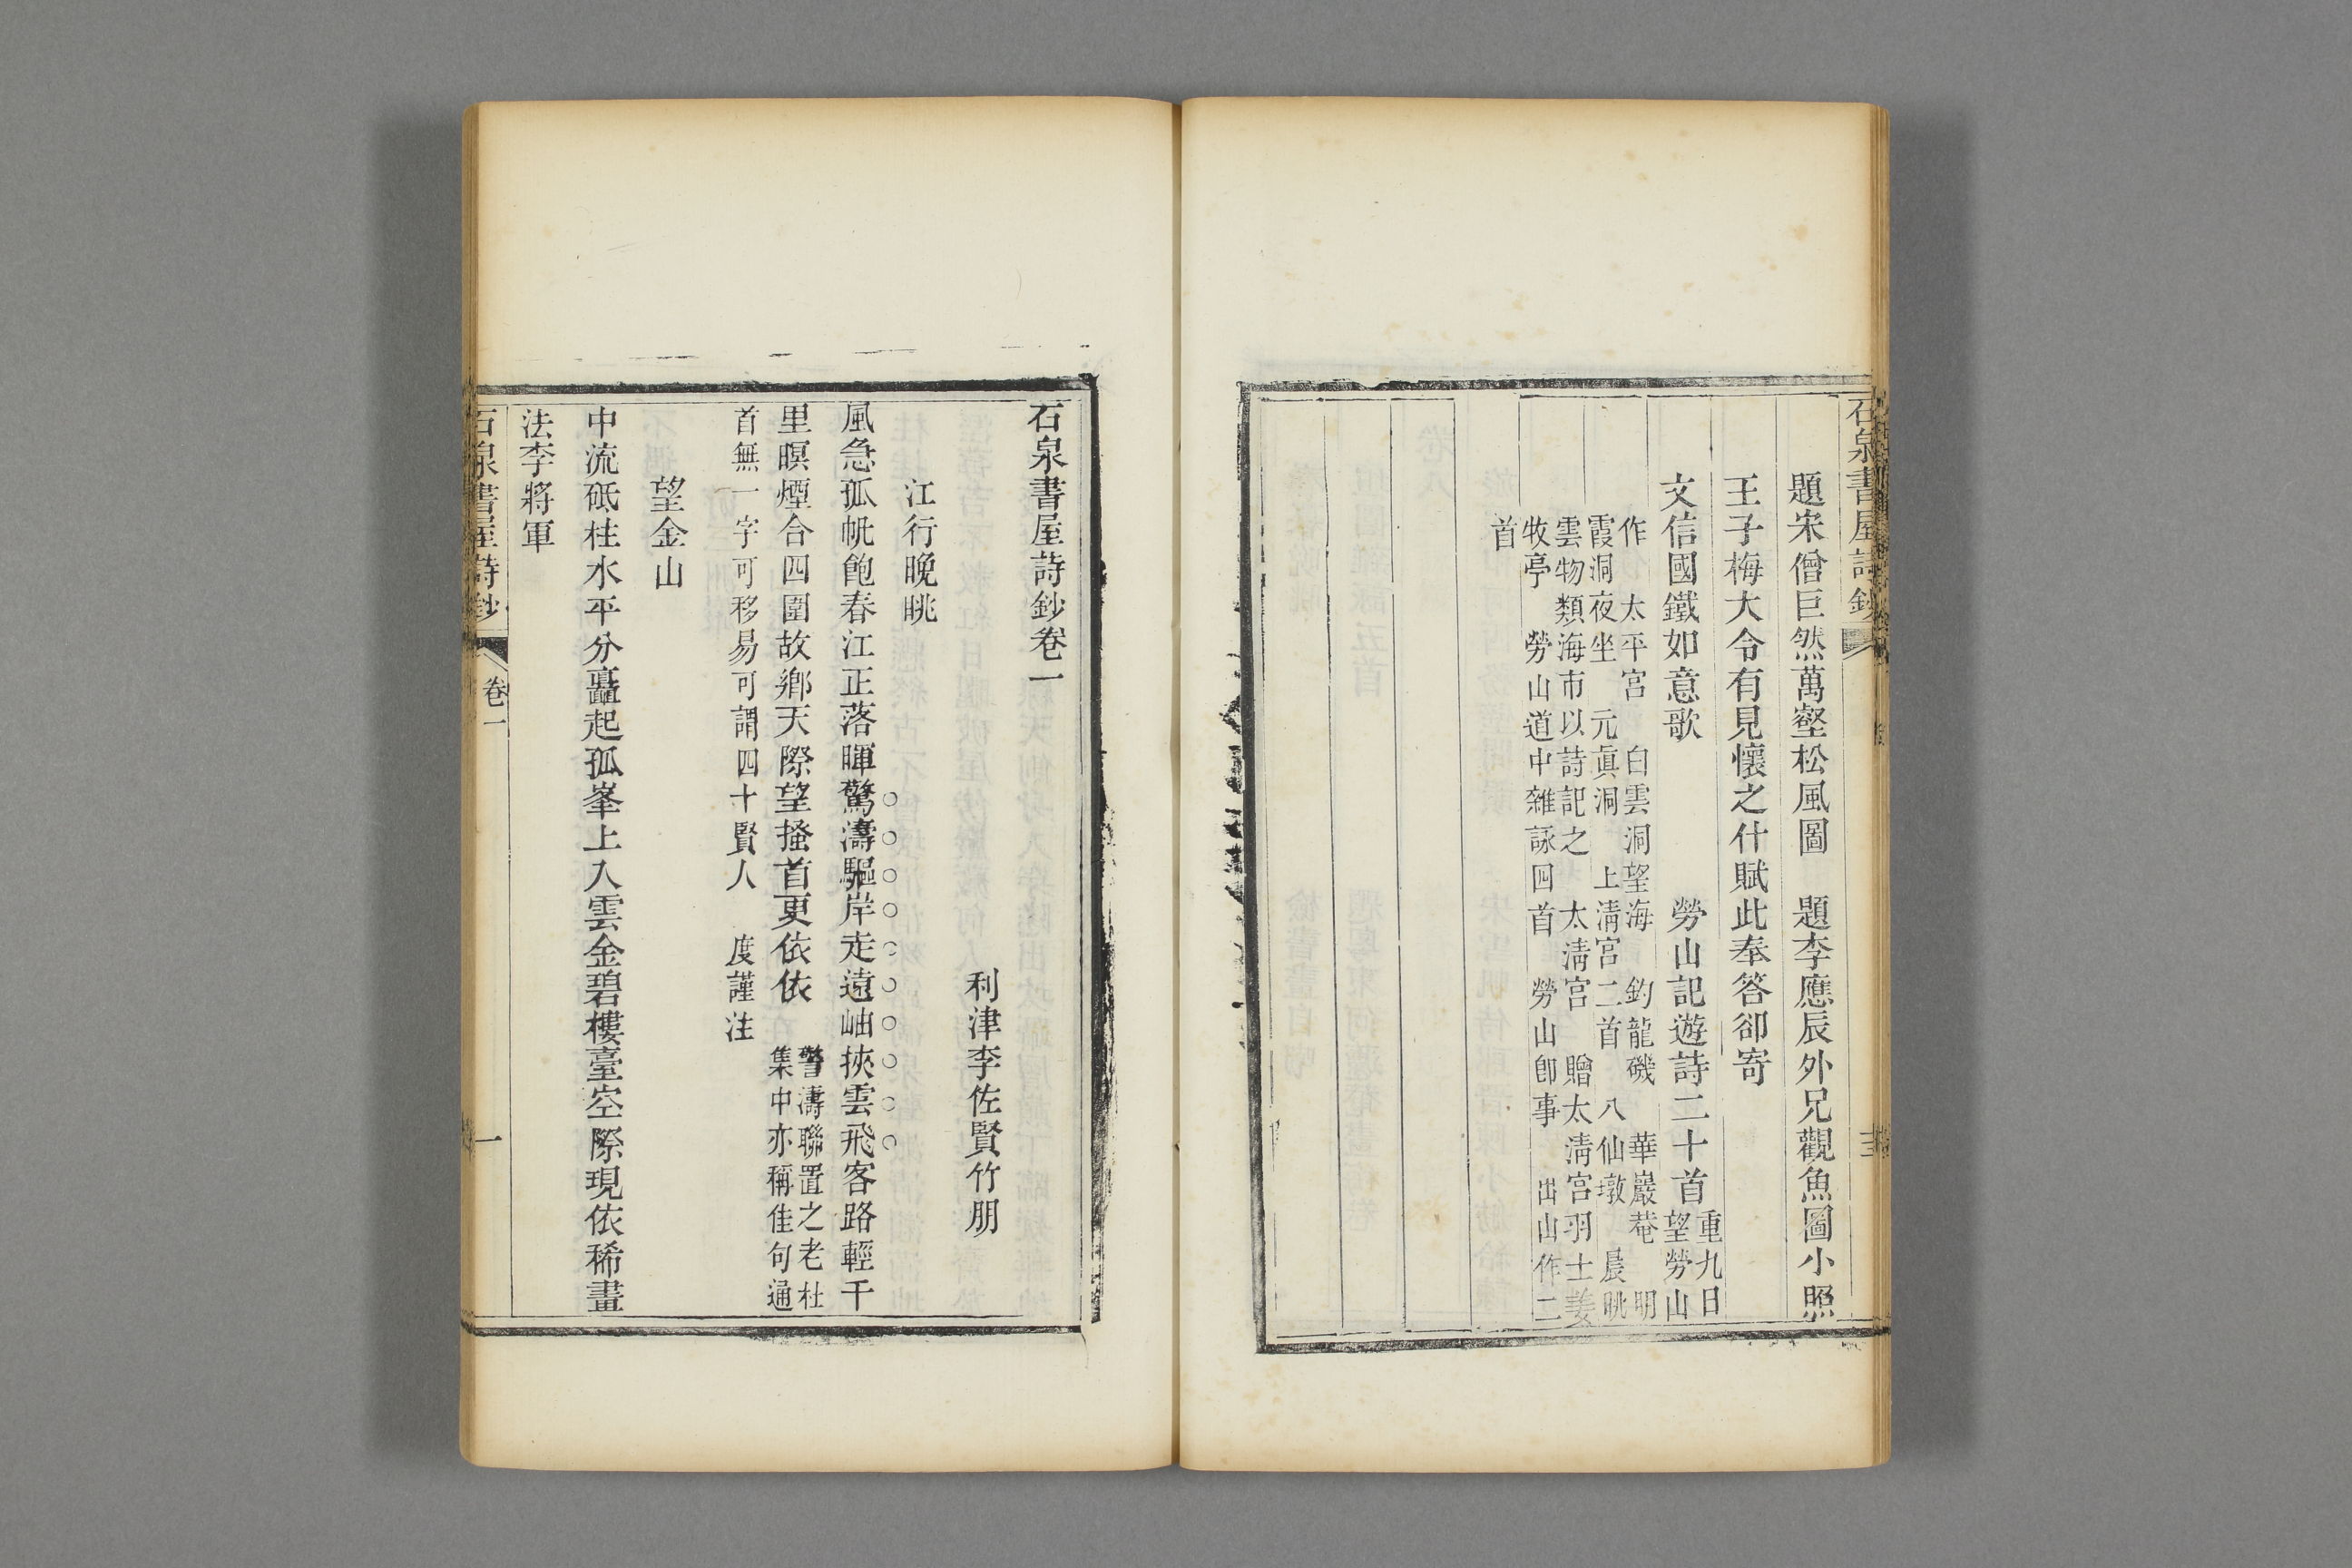 石泉書屋詩鈔
題宋僧巨然萬壑松風圖　題李應辰外兄觀魚圖小照
王子梅大令有見懷之什賦此奉答卻寄
文信國鐵如意歌　勞山記遊詩二十首
重九日
望勞山
作　太平宮　白雲洞望海　釣龍磯　華巖菴　明
霞洞夜坐　元眞洞　上清宮二首　八仙墩　晨眺
雲物類海市以詩記之　太清宮　贈太清宮羽士姜
牧亭　勞山道中雜詠四首　勞山卽事　出山作二
首
石泉書屋詩鈔卷一
利津李佐賢竹朋
江行晚眺
風急孤帆飽春江正落暉驚濤驅岸走遠岫挾雲飛客路輕千
里暝煙合四圍故鄉天際望搔首更依依
驚濤聯置之老杜
集中亦稱佳句通
首無一字可移易可謂四十賢人　度謹注
望金山
中流砥柱水平分矗起孤峯上入雲金碧樓臺空際現依稀畫
法李將軍
石泉書屋詩鈔
卷一
一